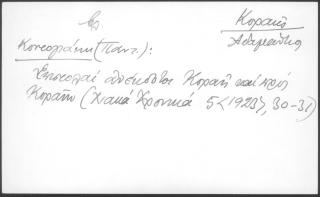 Κοραής
Ἀδαμάντιος
Κοντογιάννη (Παντ.):
Ἐπιστολαὶ ἀνέκδοτοι Κοραῆ καὶ πρὸς
Κοραῆν (Χιακὰ Χρονικά 5 <1923>, 30-31)